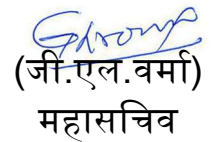 (जी.एल.वर्मा)
महासचिव